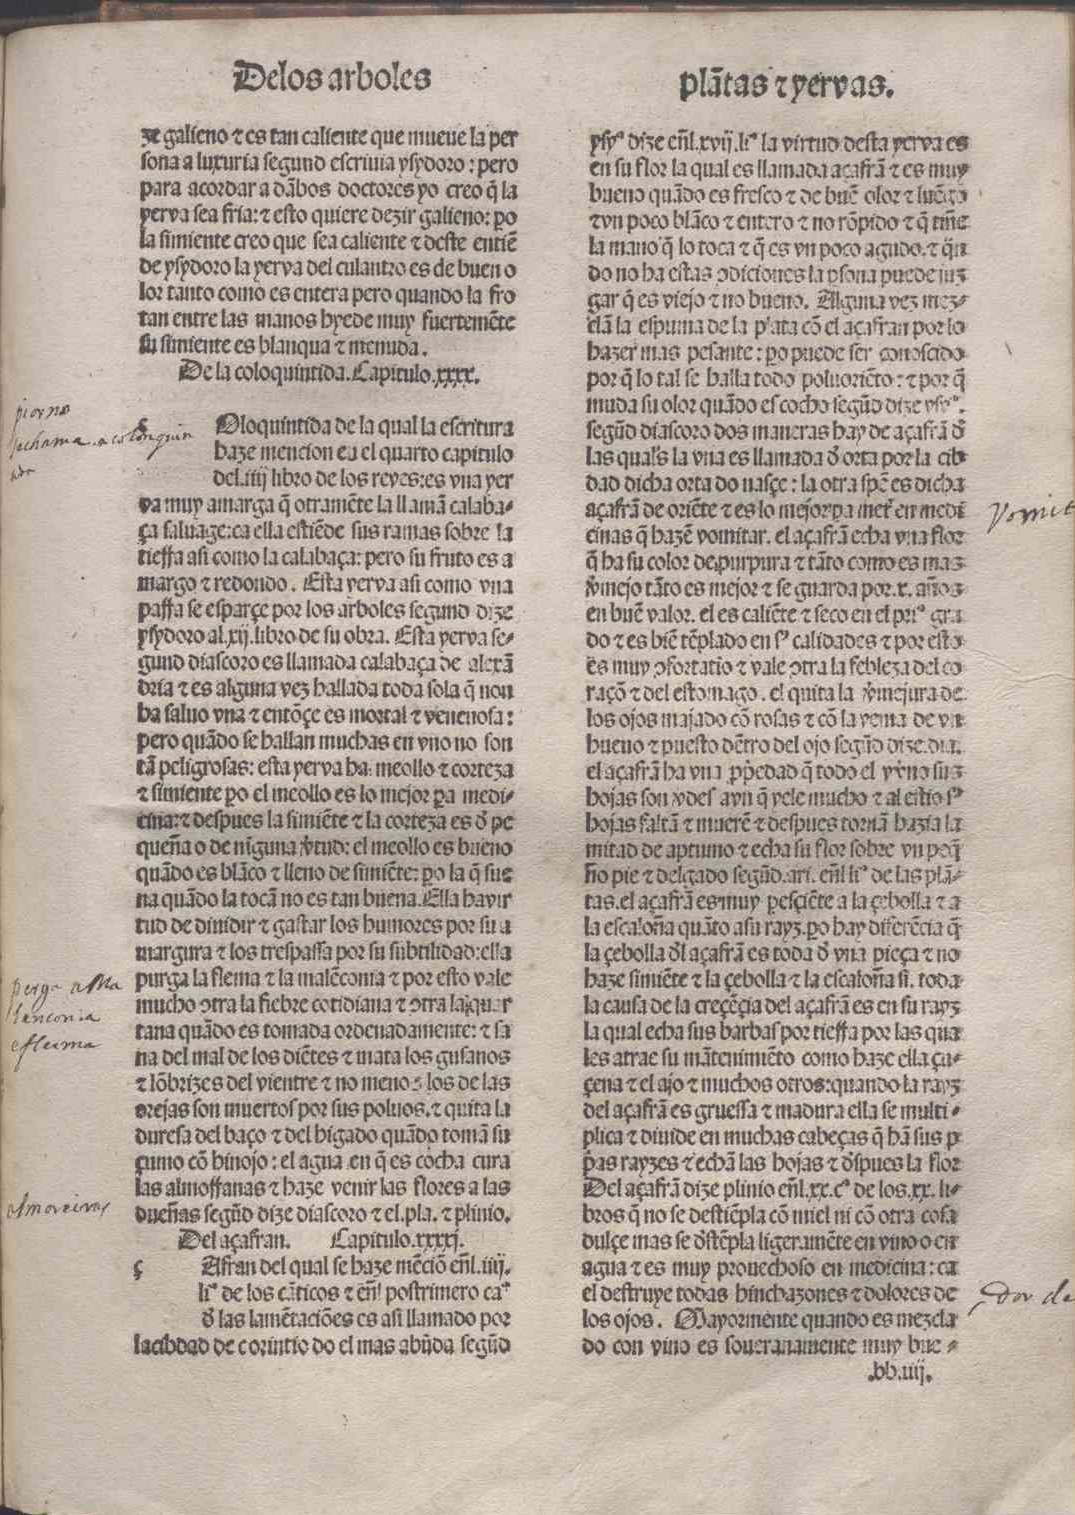 Delos arboles
plātas ⁊ yervas.
ze galieno ⁊ es tan caliente que mueue la per
sona a luxuria segund escriuia ysydoro : pero
para acordar a dābos doctores yo creo q̄ la
yerva sea fria: ⁊ esto quiere dezir galieno: ꝑo
la simiente creo que sea caliente ⁊ deste entiē
de ysydoro la yerva del culantro es de buen o
lor tanto como es entera pero quando la fro
tan entre las manos hyede muy fuertemēte
su simiente es blanqua ⁊ menuda.
De la coloquintida. Capitulo .xxxx.
Oloquintida de la qual la escritura
haze mencion en el quarto capitulo
del .iiij libro de los reyes: es vna yer
va muy amarga q̄ otramēte la llamā calaba-
ça saluage: ca ella estiēde sus ramas sobre la
tierra asi como la calabaça: pero su fruto es a
margo ⁊ redondo. Esta yerva asi como vna
parra se esparçe por los arboles segund dize
ysydoro al .xij. libro de su obra. Esta yerva se-
gund diascoro es llamada calabaça de alexā
dria ⁊ es alguna vez hallada toda sola q̄ non
ha saluo vna ⁊ entōçe es mortal ⁊ venenosa :
pero quādo se hallan muchas en vno no son
tā peligrosas: esta yerva ha meollo ⁊ corteza
⁊ simiente ꝑo el meollo es lo mejor ꝑa medi-
cina: ⁊ despues la simiēte ⁊ la corteza es d̄ pe
queña o de ninguna v̄tud: el meollo es bueno
quādo es blāco ⁊ lleno de simiēte: ꝑo la q̄ sue
na quādo la tocā no es tan buena. Ella ha vir
tud de diuidir ⁊ gastar los humores por su a
margura ⁊ los trespassa por su subtilidad: ella
purga la flema ⁊ la malēconia ⁊ por esto vale
mucho ↄtra la fiebre cotidiana ⁊ ↄtra la quar
tana quādo es tomada ordenadamente: ⁊ sa
na del mal de los diētes ⁊ mata los gusanos
⁊ lōbrizes del vientre ⁊ no menos los de las
orejas son muertos por sus poluos. ⁊ quita la
duresa del baço ⁊ del higado quādo tomā su
çumo cō hinojo : el agua en q̄ es cocha cura
las almorranas ⁊ haze venir las flores a las
dueñas segūd dize diascoro ⁊ el .pla. ⁊ plinio.
Del açafran. Capitulo .xxxxj.
ç Afran del qual se haze mēciō eñl .iiij.
li° de los cāticos ⁊ eñl postrimero ca°
d̄ las lamētaciōes es asi llamado por
la cibdad de corintio do el mas abūda segūd
ysy° dize eñl .xvij. li° la virtud desta yerva es
en su flor la qual es llamada açafrā ⁊ es muy
bueno quādo es fresco ⁊ de buē olor ⁊ luēgo
⁊ vn poco blāco ⁊ entero ⁊ no rōpido ⁊ q̄ tiñe
la mano q̄ lo toca ⁊ q̄ es vn poco agudo. ⁊ q̄n
do no ha estas ↄdiciones la ꝑsona puede juz
gar q̄ es viejo ⁊ no bueno. Alguna vez mez-
clā la espuma de la plata cō el açafran por lo
hazer mas pesante : ꝑo puede ser conoscido
por q̄ lo tal se halla todo poluoriēto : ⁊ por q̄
muda su olor quādo es cocho segūd dize ysy°.
segūd diascoro dos maneras hay de açafrā d̄
las quals la vna es llamada d̄ orta por la cib
dad dicha orta do nasçe : la otra spē es dicha
açafrā de oriēte ⁊ es lo mejor ꝑa meter en medi
cinas q̄ hazē vomitar. el açafrā echa vna flor
q̄ ha su color de purpura ⁊ tāto como es mas
v̄mejo tāto es mejor ⁊ se guarda por .x. años
en buē valor. el es caliēte ⁊ seco en el pri° gra
do ⁊ es biē tēplado en sº calidades ⁊ por esto
es muy ↄfortatio ⁊ vale ↄtra la febleza del co
raçō ⁊ del estomago. el quita la v̄mejura de
los ojos majado cō rosas ⁊ cō la yema de vn
hueuo ⁊ puesto dētro del ojo segūd dize dia.
el açafrā ha vna ꝓpedad q̄ todo el yv̄no sus
hojas son v̄des ayn q̄ yele mucho ⁊ al estio sº
hojas faltā ⁊ muerē ⁊ despues tornā hazia la
mitad de aptuno ⁊ echa su flor sobre vn peq̄
ño pie ⁊ delgado segūd .ari. eñl li° de las plā-
tas. el açafrā es muy ꝑesçiēte a la çebolla ⁊ a
la escaloña quāto a su rayz. ꝑo hay diferēcia q̄
la çebolla d̄l açafrā es toda d̄ vna pieça ⁊ no
haze simiēte ⁊ la çebolla ⁊ la escaloña si. toda
la causa de la creçēçia del açafrā es en su rayz
la qual echa sus barbas por tierra por las qua
les atrae su mātenimiēto como haze ella çu-
çena ⁊ el ajo ⁊ muchos otros: quando la rayz
del açafrā es gruessa ⁊ madura ella se multi-
plica ⁊ diuide en muchas cabeças q̄ hā sus ꝓ
pas rayzes ⁊ echā las hojas ⁊ d̄spues la flor
Del açafrā dize plinio eñl .xx. c° de los .xx. li-
bros q̄ no se destiēpla cō miel ni cō otra cosa
dulçe mas se d̄stēpla ligeramēte en vino o en
agua ⁊ es muy prouechoso en medicina : ca
el destruye todas hinchazones ⁊ dolores de
los ojos. Mayormente quando es mezcla
do con vino es soueranamente muy bue-
.bb.iiij.
piorno
se chama
purga a Ma
lanconia
e fleima
almoreimas
vomit
dor de